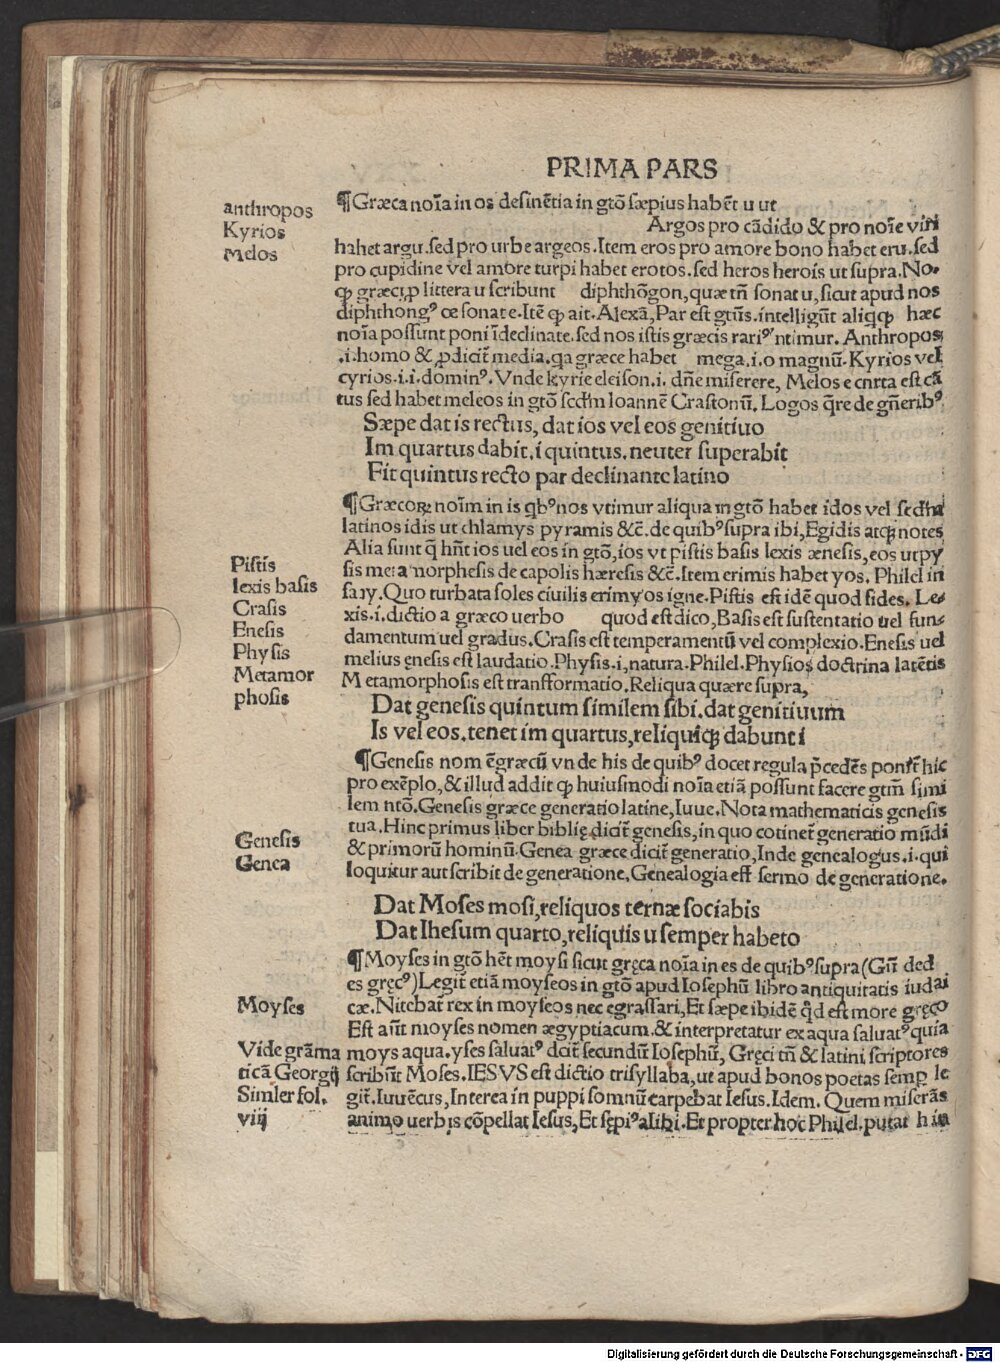 PRIMA PARS
¶Græca noīa in os desinētia in gtō sæpius habēt u ut
Argos pro cādido & pro noīe viri
habet argu.sed pro urbe argeos.Item eros pro amore bono habet eru.sed
pro cupidine vel amore turpi habet erotos.sed heros herois ut supra.No⸗
ꝙ græci,ꝓ littera u scribunt diphthōgon,quæ tñ sonat u,sicut apud nos
diphthongꝰ œ sonat e.Itē ꝙ ait.Alexā,Par est gtūs.intelligūt aliqꝙ hæc
noīa possunt poni īdeclinate.sed nos istis græcis rariꝰ ntimur. Anthropos
.i.homo & ꝓdicit̄ media.qa græce habet mega.i.o magnū.Kyrios vel
cyrios.i.i.dominꝰ.Vnde kyrie eleison.i. dñe miserere, Melos e cnrta est cā
tus sed habet meleos in gtō secd̄m Ioannē Crastonū.Logos q̄re de gn̄eribꝰ
Sæpe dat is rectus, dat ios vel eos genitiuo
Im quartus dabit,i quintus.neuter superabit
Fit quintus recto par declinante latino
¶Græcoꝝ noīm in is qbꝰ nos vtimur aliqua in gtō habēt idos vel secd̄m
latinos idis ut chlamys pyramis &c̄.de quibꝰ supra ibi,Egidis atqꝫ notes
Alia sunt q̄ hñt ios uel eos in gtō,ios vt pistis basis lexis ænesis,eos ut py
sis metamorphesis de capolis hæresis &c̄.Item erimis habet yos. Philel in
saty.Quo turbata soles ciuilis erimyos igne.Pistis est idē quod fides. Le⸗
xis.i.dictio a græco uerbo quod est dico,Basis est sustentatio uel fun⸗
damentum uel gradus.Crasis est temperamentū vel complexio.Enesis uel
melius enesis est laudatio.Physis.i,natura.Philel.Physios doctrina latētis
Metamorphosis est transformatio.Reliqua quære supra,
Dat genesis quintum similem sibi.dat genitiuum
Is vel eos.tenet im quartus,reliquiqꝫ dabunt i
¶Genesis nom ē græcū vnde his de quibꝰ docet regula p̄cedēs ponit̄ hic
pro exēplo,& illud addit ꝙ huiusmodi noīa etiā possunt facere gtm̄ simi
lem ntō.Genesis græce generatio latine,Iuue.Nota mathematicis genesis
tua.Hinc primus liber biblię dicit̄ genesis,in quo cōtinet̄ generatio mūdi
& primorū hominū.Genea græce dicit̄ generatio,Inde genealogus.i.qui
loquitur aut scribit de generatione.Genealogia est sermo de generatione.
Dat Moses mosi,reliquos ternæ sociabis
Dat Ihesum quarto,reliquis u semper habeto
¶Moyses in gtō hēt moysi sicut gręca noīa in es de quibꝰ supra(Gtī ded
es gręcꝰ)Legit̄ etiā moyseos in gtō apud Iosephū libro antiquitatis iudai
cæ.Nitebat̄ rex in moyseos nec egrassari,Et sæpe ibidē qd̄ est more gręco
Est aūt moyses nomen ægyptiacum.& interpretatur ex aqua saluatꝰ quia
moys aqua.yses saluatꝰ dcit̄ secundū Iosephū, Gręci tñ & latini scriptores
scribūt Moses.IESVS est dictio trisyllaba,ut apud bonos poetas semp le
git̄.Iuuēcus,Interea in puppi somnū carpebat Iesus.Idem. Quem miserās
animo uerbis cōpellat Iesus,Et sępiꝰ alibi.Et propter hoc Philel.putat hin
anthropos
Kyrios
Melos
Pistis
lexis basis
Crasis
Enesis
Physis
Metamor
phosis
Genesis
Genea
Moyses
Vide grāma
ticā Georgij
Simler fol.
viij
Digitalisierung gefördert durch die Deutsche Forschungsgemeinschaft - DFG